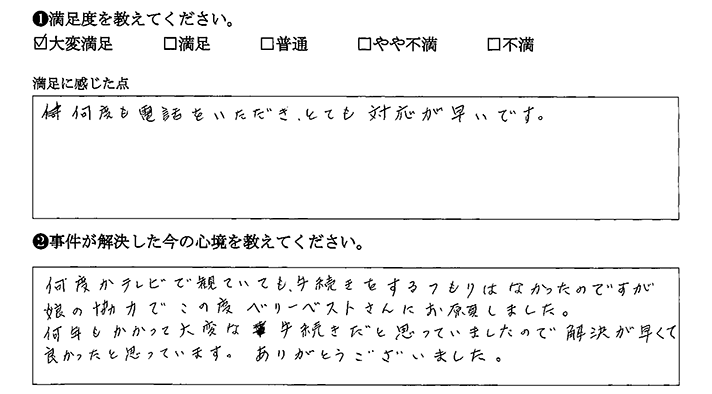 ❶満足度を教えてください。
☑大変満足 □満足 □普通 □やや不満 □不満
満足に感じた点
何度も電話をいただき、とても対応が早いです。
❷事件が解決した今の心境を教えてください。
何度かテレビで観ていても、手続きをするつもりはなかったのですが
娘の協力でこの度ベリーベストさんにお願しました。
何年もかかって大変な手続きだと思っていましたので解決が早くて
良かったと思っています。ありがとうございました。